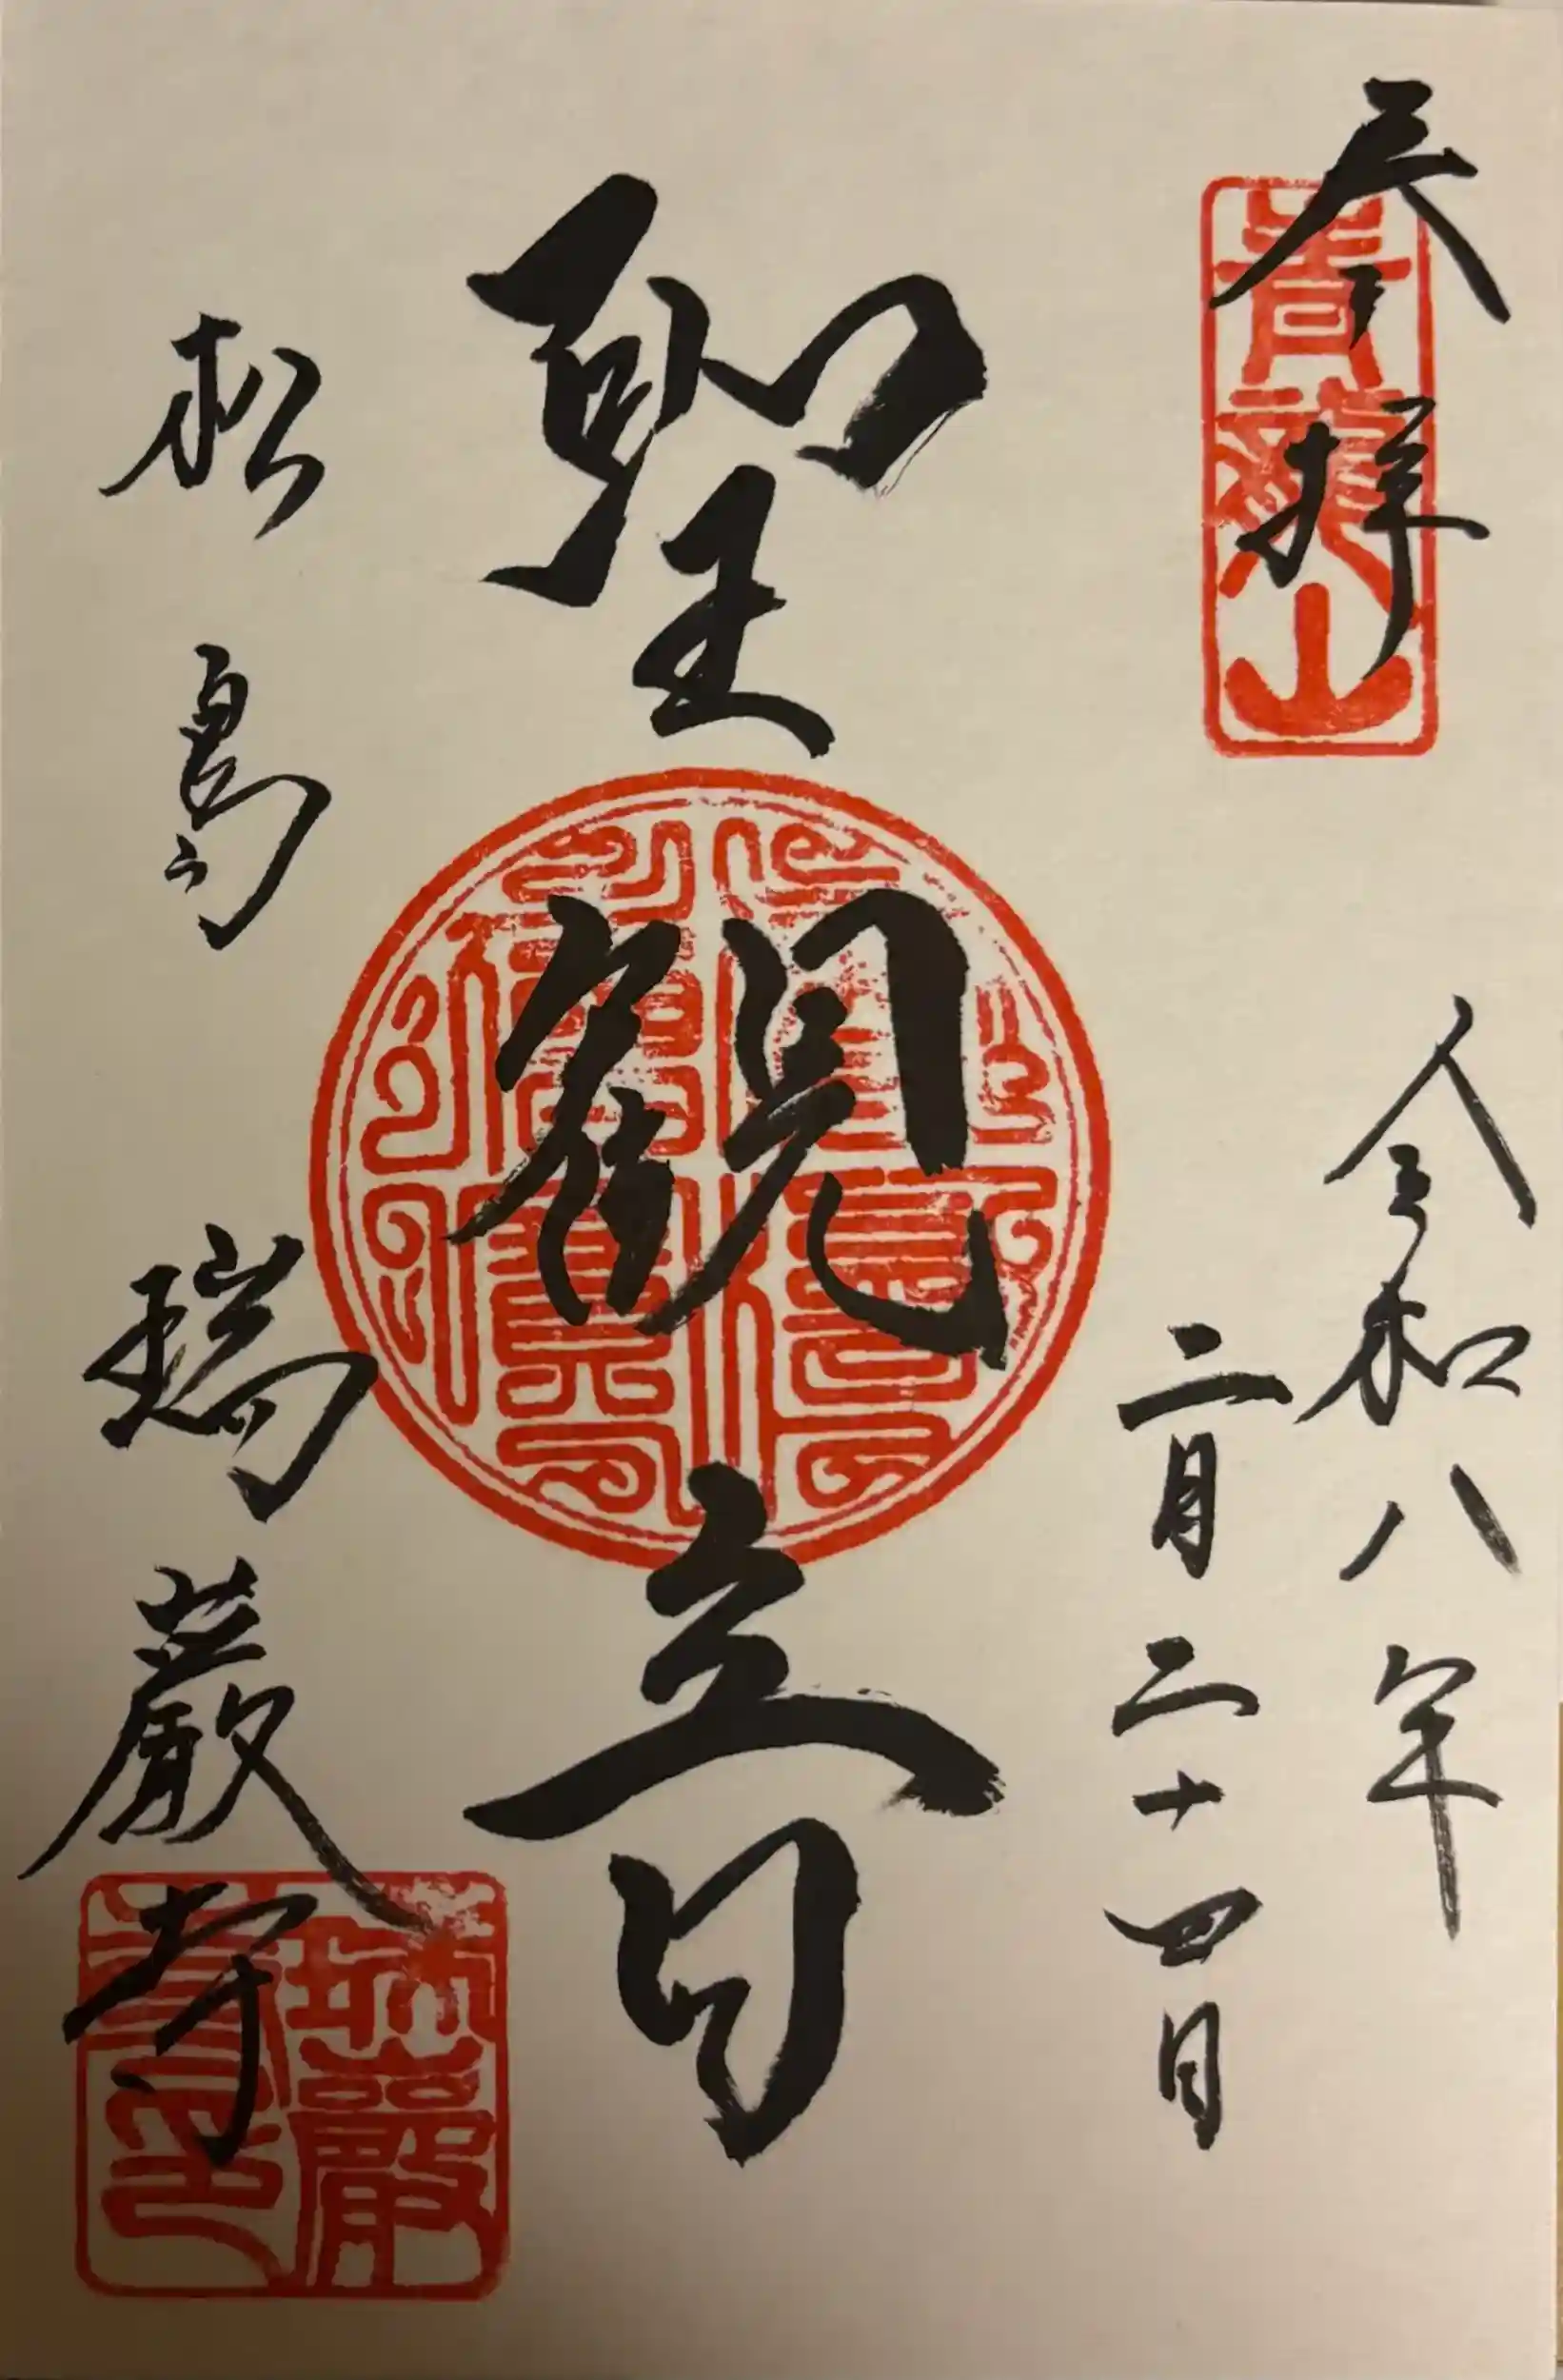 奉拝
青龍山
令和八年
二月二十四日
聖観音
松島
瑞巌寺
瑞巌寺印